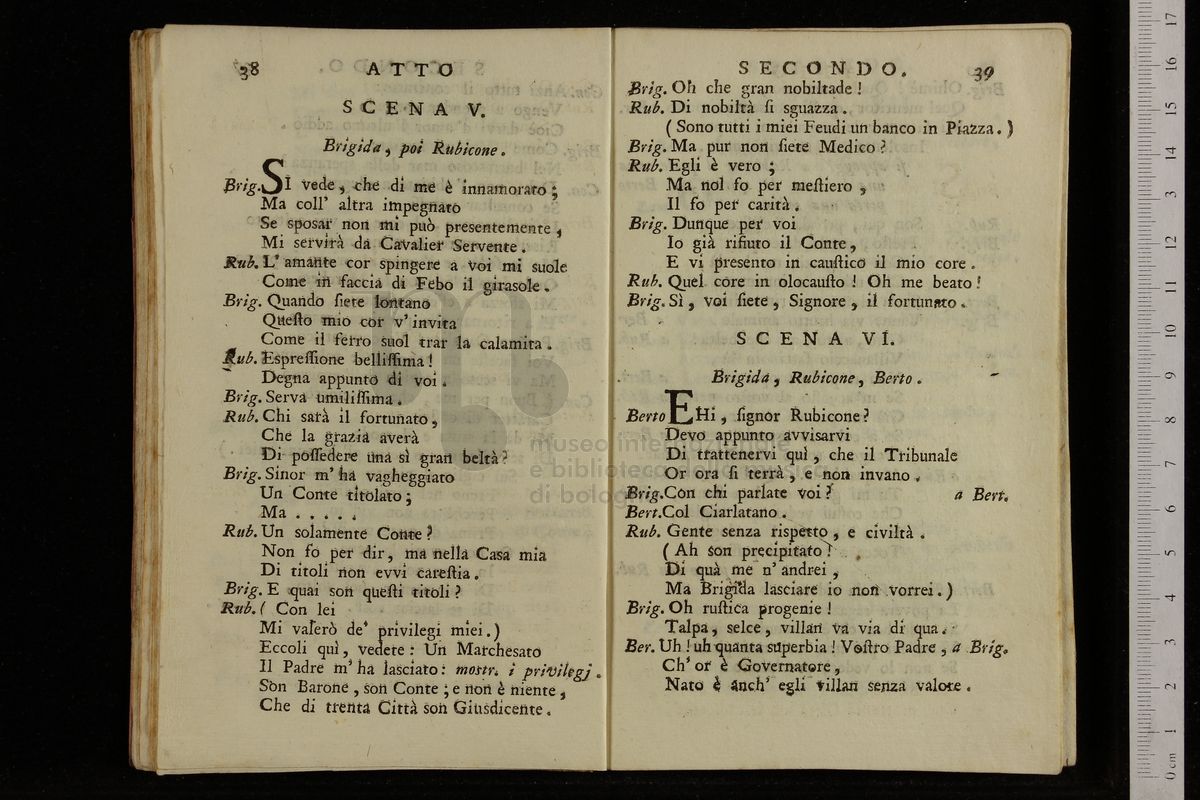 38 ATTO
SCENA V.
Brigida, poi Rubicone.
Brig. SI vede, che di me è innamorato;
Ma coll' altra impegnato
Se sposar non mi può presentemente,
Mi servirà da Cavalier Servente.
Rub. L' amante cor spingere a voi mi suole
Come in faccia di Febo il girasole.
Brig. Quando ſiete lontano
Queſto mio cor v' invita
Come il ferro suol trar la calamita.
Rub. Espreſſione belliſſima!
Degna appunto di voi.
Brig. Serva umiliſſima.
Rub. Chi sarà il fortunato,
Che la grazia averà
Di poſſedere una sì gran beltà?
Brig. Sinor m' ha vagheggiato
Un Conte titolato;
Ma . . . . .
Rub. Un solamente Conte?
Non fo per dir, ma nella Casa mia
Di titoli non evvi careſtia.
Brig. E quai son queſti titoli?
Rub. ( Con lei
Mi valerò de' privilegi miei.)
Eccoli quì, vedete: Un Marchesato
Il Padre m' ha lasciato: mostr. i privilegj.
Son Barone, son Conte; e non è niente,
Che di trenta Città son Giusdicente.
SECONDO. 39
Brig. Oh che gran nobiltade!
Rub. Di nobiltà ſi sguazza.
( Sono tutti i miei Feudi un banco in Piazza.)
Brig. Ma pur non ſiete Medico?
Rub. Egli è vero;
Ma nol fo per meſtiero,
Il fo per carità.
Brig. Dunque per voi
Io già rifiuto il Conte,
E vi presento in cauſtico il mio core.
Rub. Quel core in olocauſto! Oh me beato!
Brig. Sì, voi ſiete, Signore, il fortunato.
SCENA VI.
Brigida, Rubicone, Berto.
Berto EHi, ſignor Rubicone?
Devo appunto avvisarvi
Di trattenervi quì, che il Tribunale
Or ora ſi terrà, e non invano.
Brig. Con chi parlate voi? a Bert.
Bert. Col Ciarlatano.
Rub. Gente senza rispetto, e civiltà.
( Ah son precipitato!
Di quà me n' andrei,
Ma Brigida lasciare io non vorrei.)
Brig. Oh ruſtica progenie!
Talpa, selce, villan va via di qua.
Ber. Uh! uh quanta superbia! Voſtro Padre, a Brig.
Ch' or è Governatore,
Nato è anch' egli villan senza valore.
museo internazionale
e biblioteca della musica
di bologna
0 cm 1 2 3 4 5 6 7 8 9 10 11 12 13 14 15 16 17